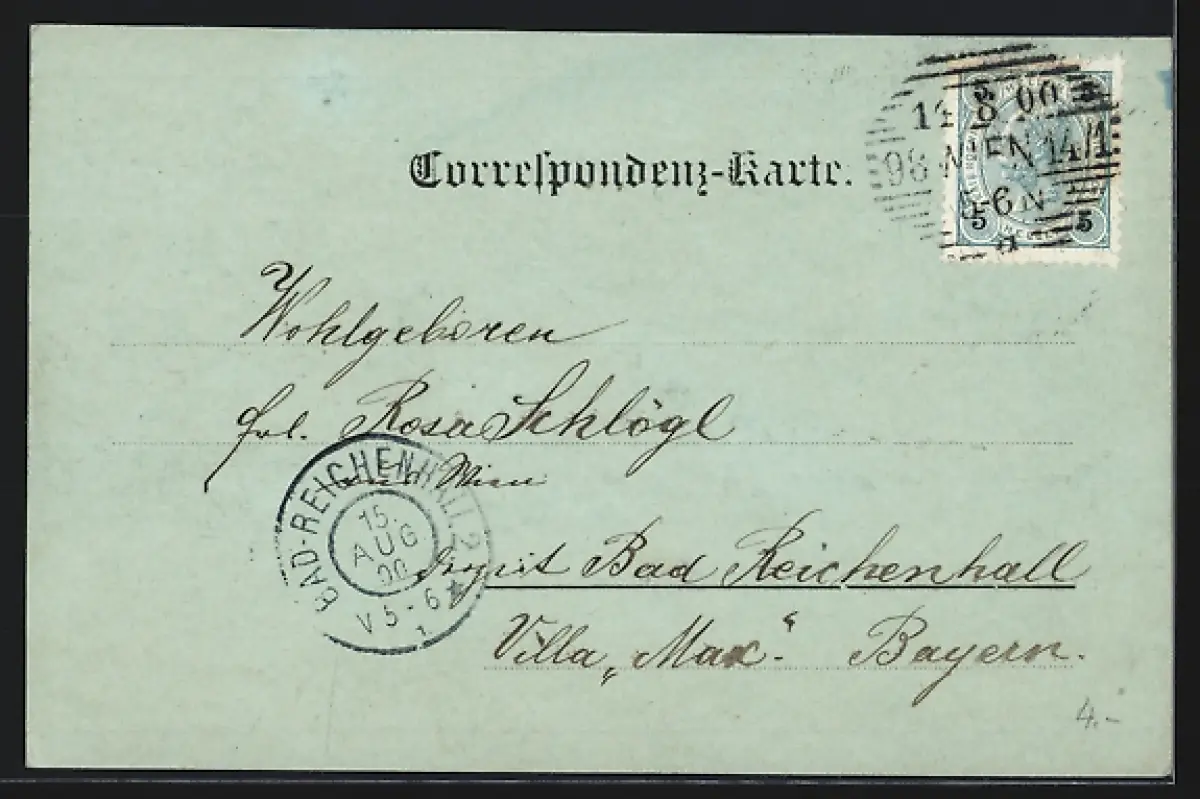 Correspondenz-Karte.
8 00
98 WIEN 14/1
-6 N
5 5
Wohlgeboren
Frl. Rosa Schlögl
aus Wien
Bad Reichenhall
Villa „Max“ Bayern.
BAD-REICHENHALL 2
15.
AUG
00
V 5-6
4.-